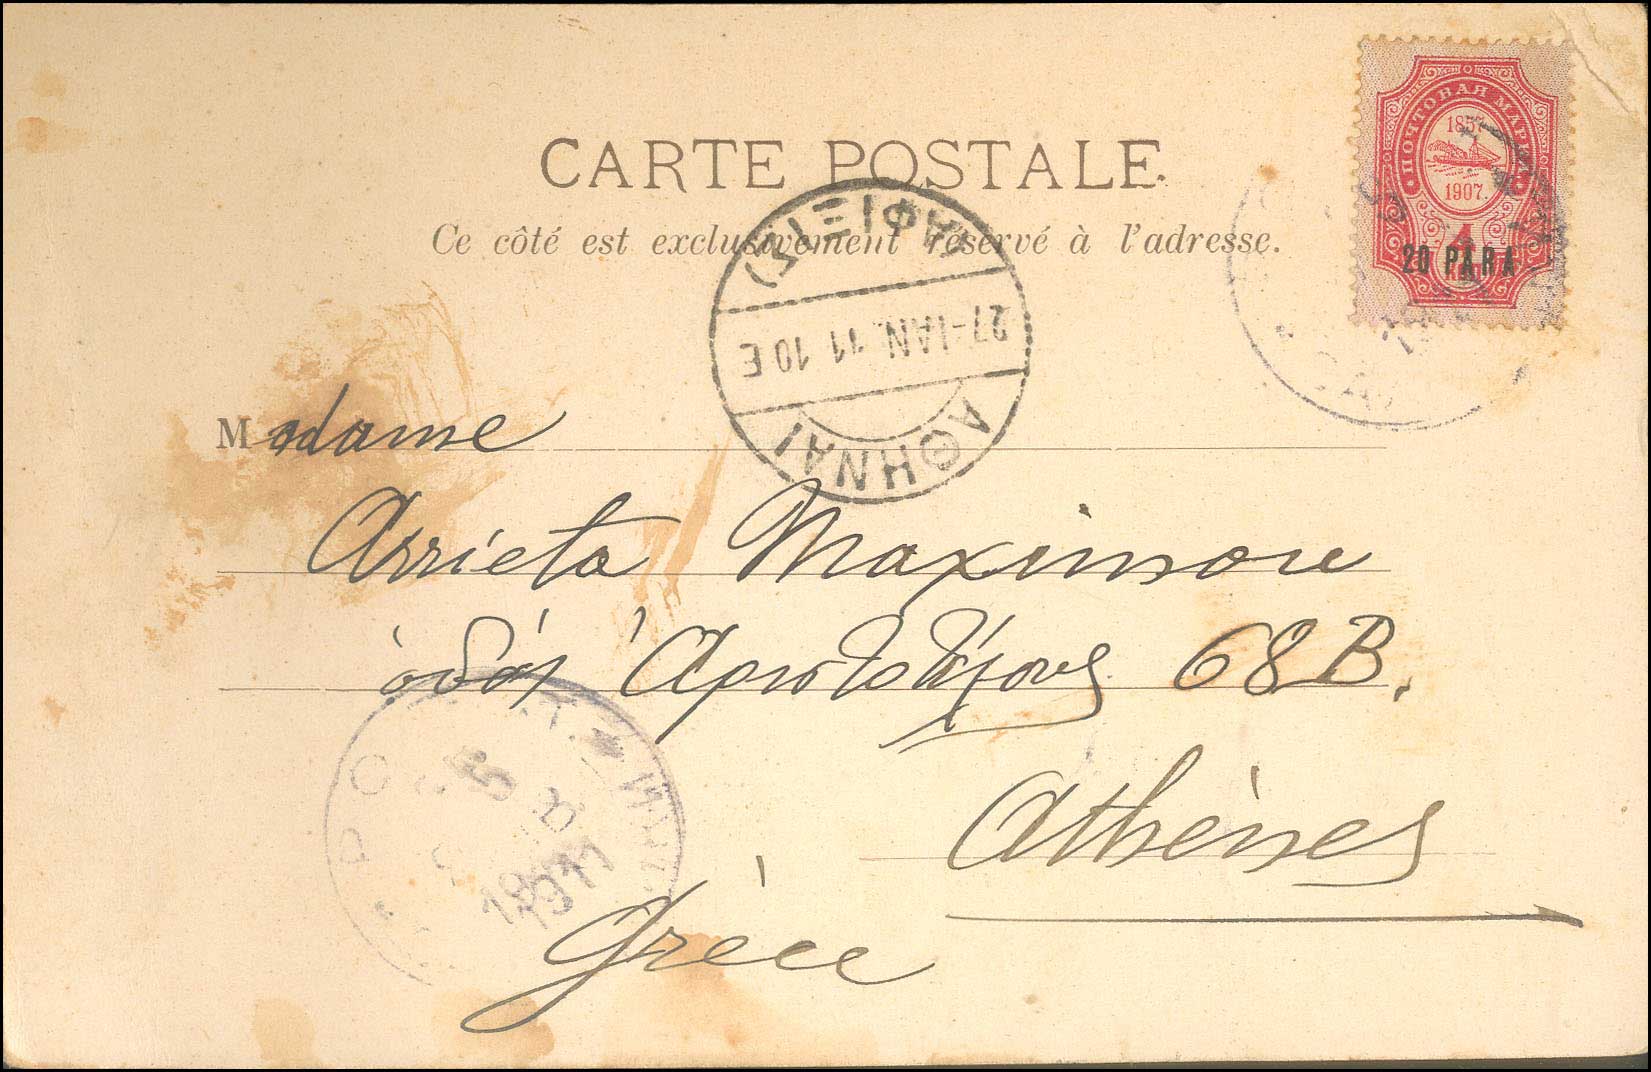 CARTE POSTALE
Ce côté est exclusivement réservé à l'adresse.
ПОЧТОВАЯ МАРКА
1857
1907.
4
20 PARA
ΑΦΙΞΙΣ
27-ΙΑΝ. 11 10 Ε
ΑΘΗΝΑΙ
Madame
Arrieta Maximou
ὁδός Ἀριστοτέλους 68B.
Athènes
Grèce
1911